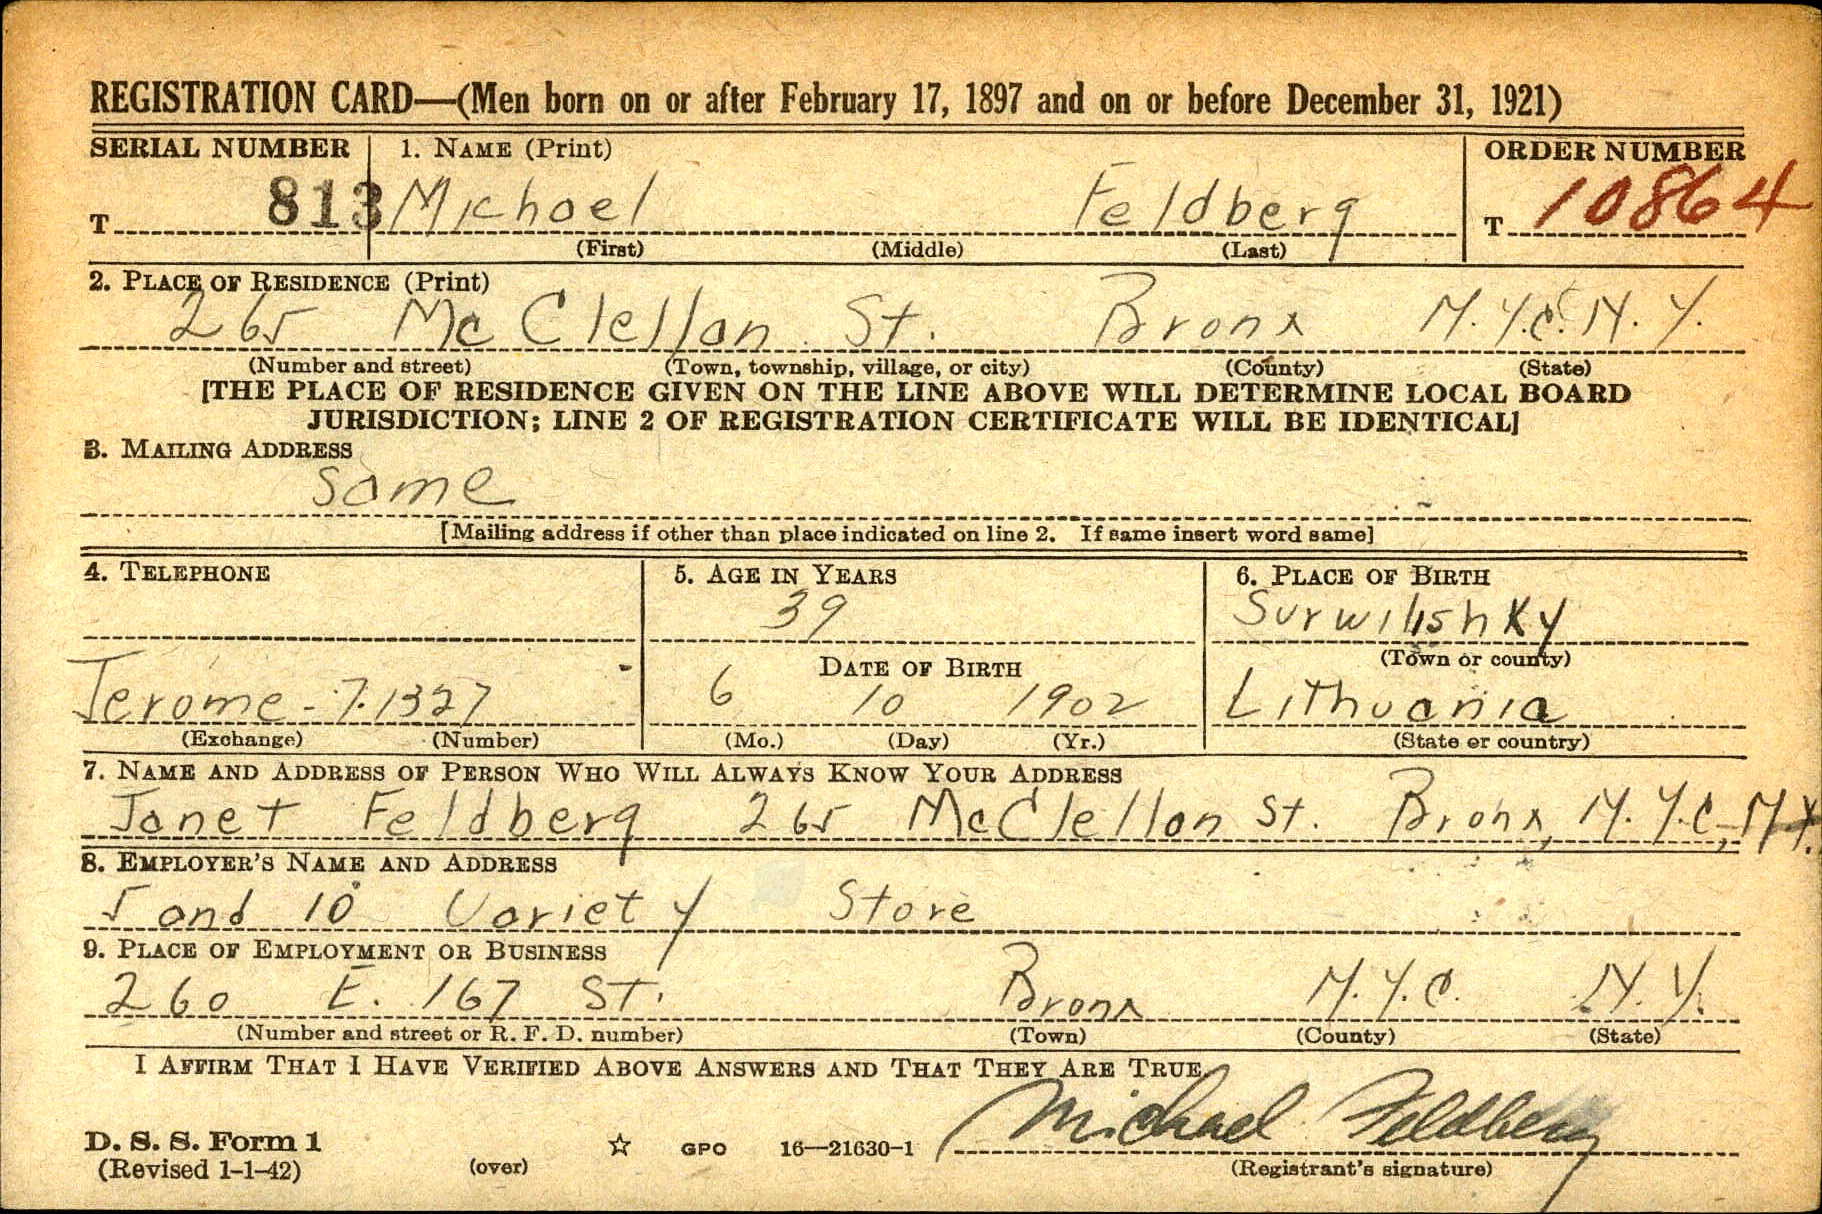 REGISTRATION CARD—(Men born on or after February 17, 1897 and on or before December 31, 1921)
SERIAL NUMBER 1. NAME (Print) ORDER NUMBER
T 813 Michael Feldberg T 10864
(First) (Middle) (Last)
2. PLACE OF RESIDENCE (Print)
265 McClellan St. Bronx N.Y.C. N.Y.
(Number and street) (Town, township, village, or city) (County) (State)
[THE PLACE OF RESIDENCE GIVEN ON THE LINE ABOVE WILL DETERMINE LOCAL BOARD
JURISDICTION; LINE 2 OF REGISTRATION CERTIFICATE WILL BE IDENTICAL]
3. MAILING ADDRESS
Same
[Mailing address if other than place indicated on line 2. If same insert word same]
4. TELEPHONE 5. AGE IN YEARS 6. PLACE OF BIRTH
39 Surwilishky
DATE OF BIRTH (Town or county)
Jerome-7.1327 6 10 1902 Lithuania
(Exchange) (Number) (Mo.) (Day) (Yr.) (State or country)
7. NAME AND ADDRESS OF PERSON WHO WILL ALWAYS KNOW YOUR ADDRESS
Janet Feldberg 265 McClellan St. Bronx, N.Y.C, N.Y.
8. EMPLOYER'S NAME AND ADDRESS
5 and 10 Variety Store
9. PLACE OF EMPLOYMENT OR BUSINESS
260 E. 167 ST. Bronx N.Y.C. N.Y.
(Number and street or R. F. D. number) (Town) (County) (State)
I AFFIRM THAT I HAVE VERIFIED ABOVE ANSWERS AND THAT THEY ARE TRUE.
Michael Feldberg
D. S. S. Form 1
(Revised 1-1-42) (over) ☆ GPO 16—21630-1 (Registrant's signature)